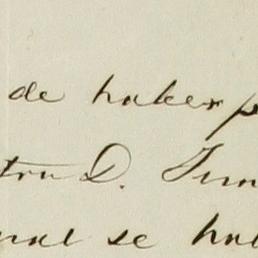 de haber p
tro D. Jun
nal se hal